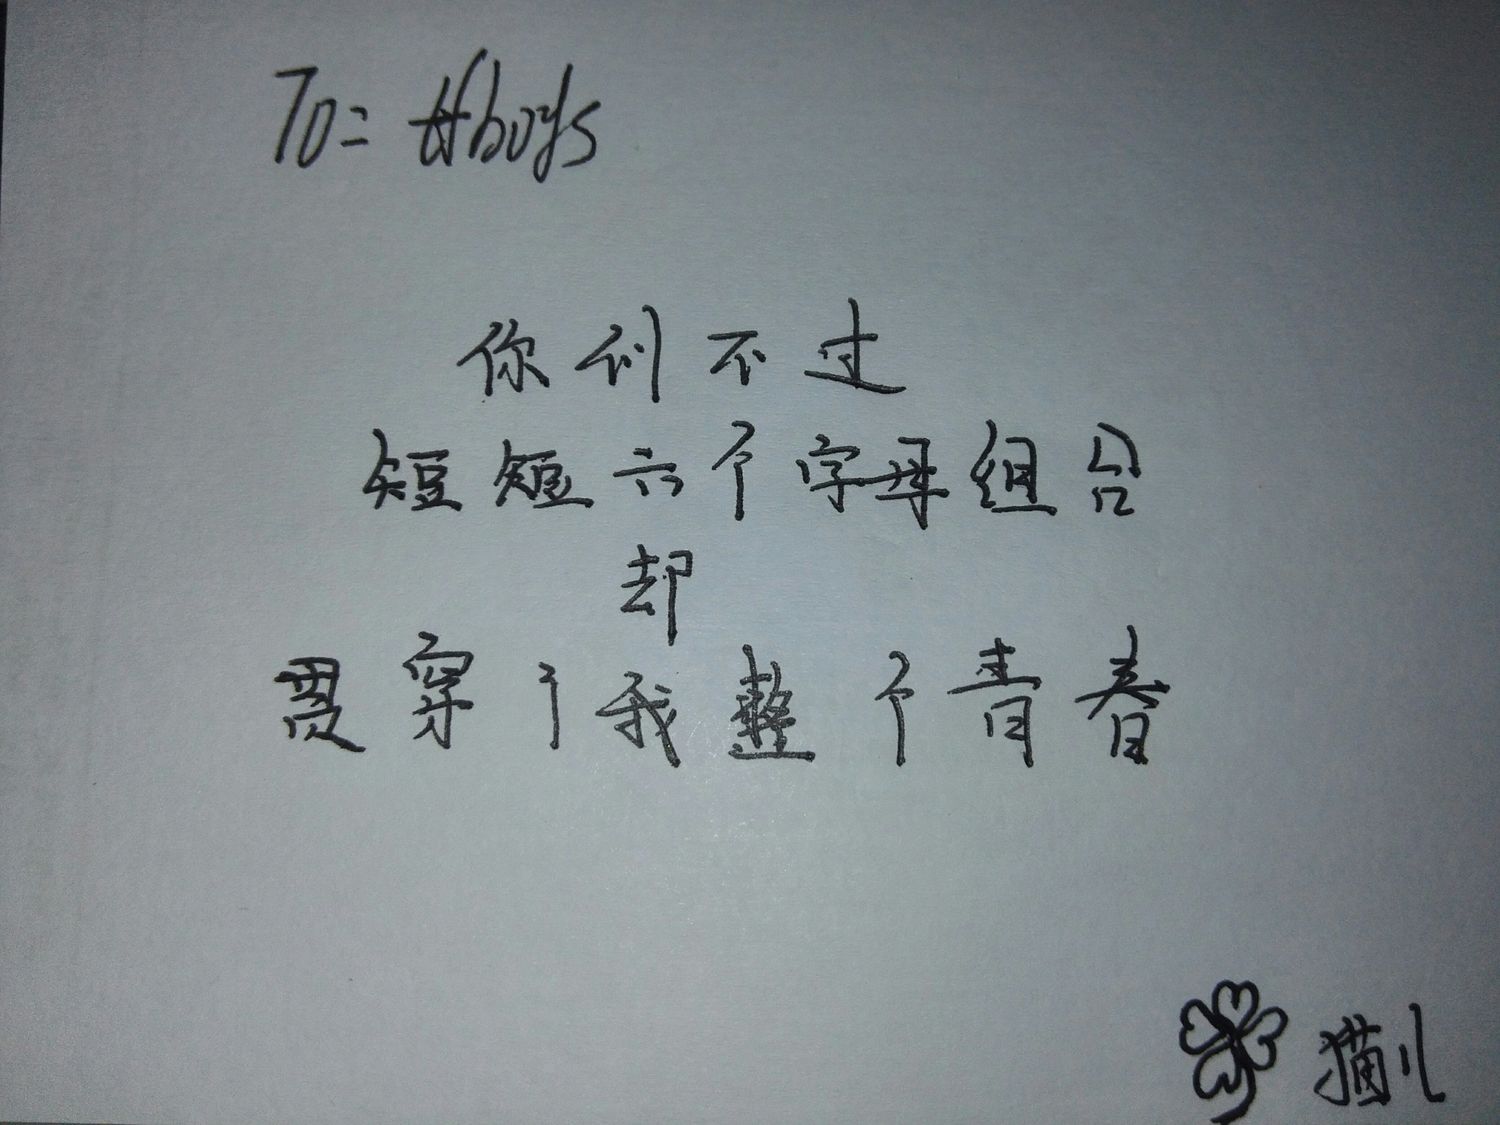 To: tfboys
你们不过
短短六个字母组合
却
贯穿了我整个青春
猫儿